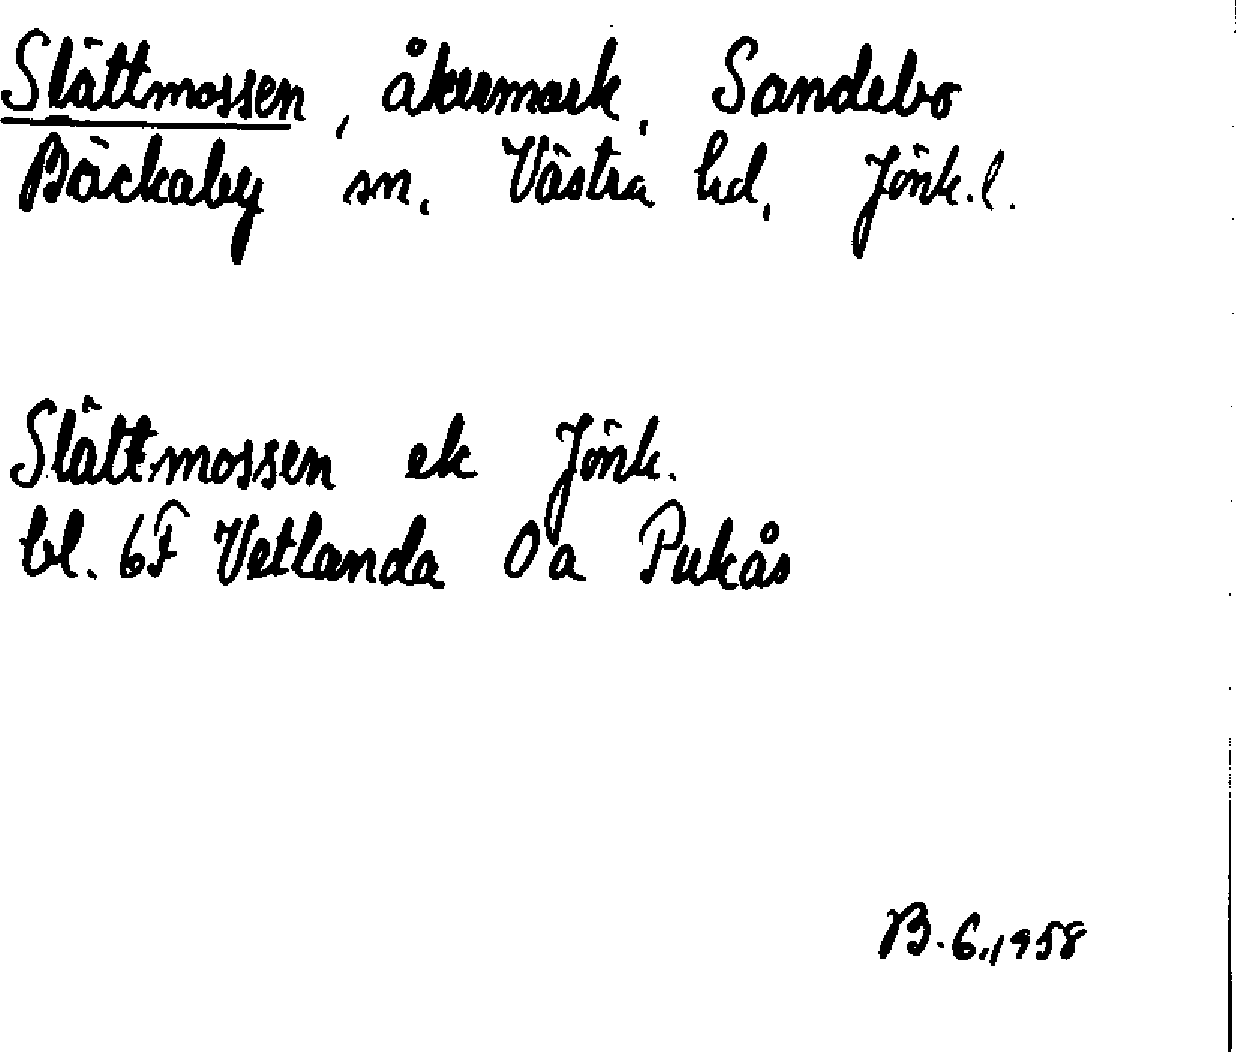 Slättmossen, åkermark, Sandebo
Bäckaby sn, Västra hd, Jönk.l.
Slättmossen ek Jönk.
bl. 6F Vetlanda 0a Pukås
B.G.,1958